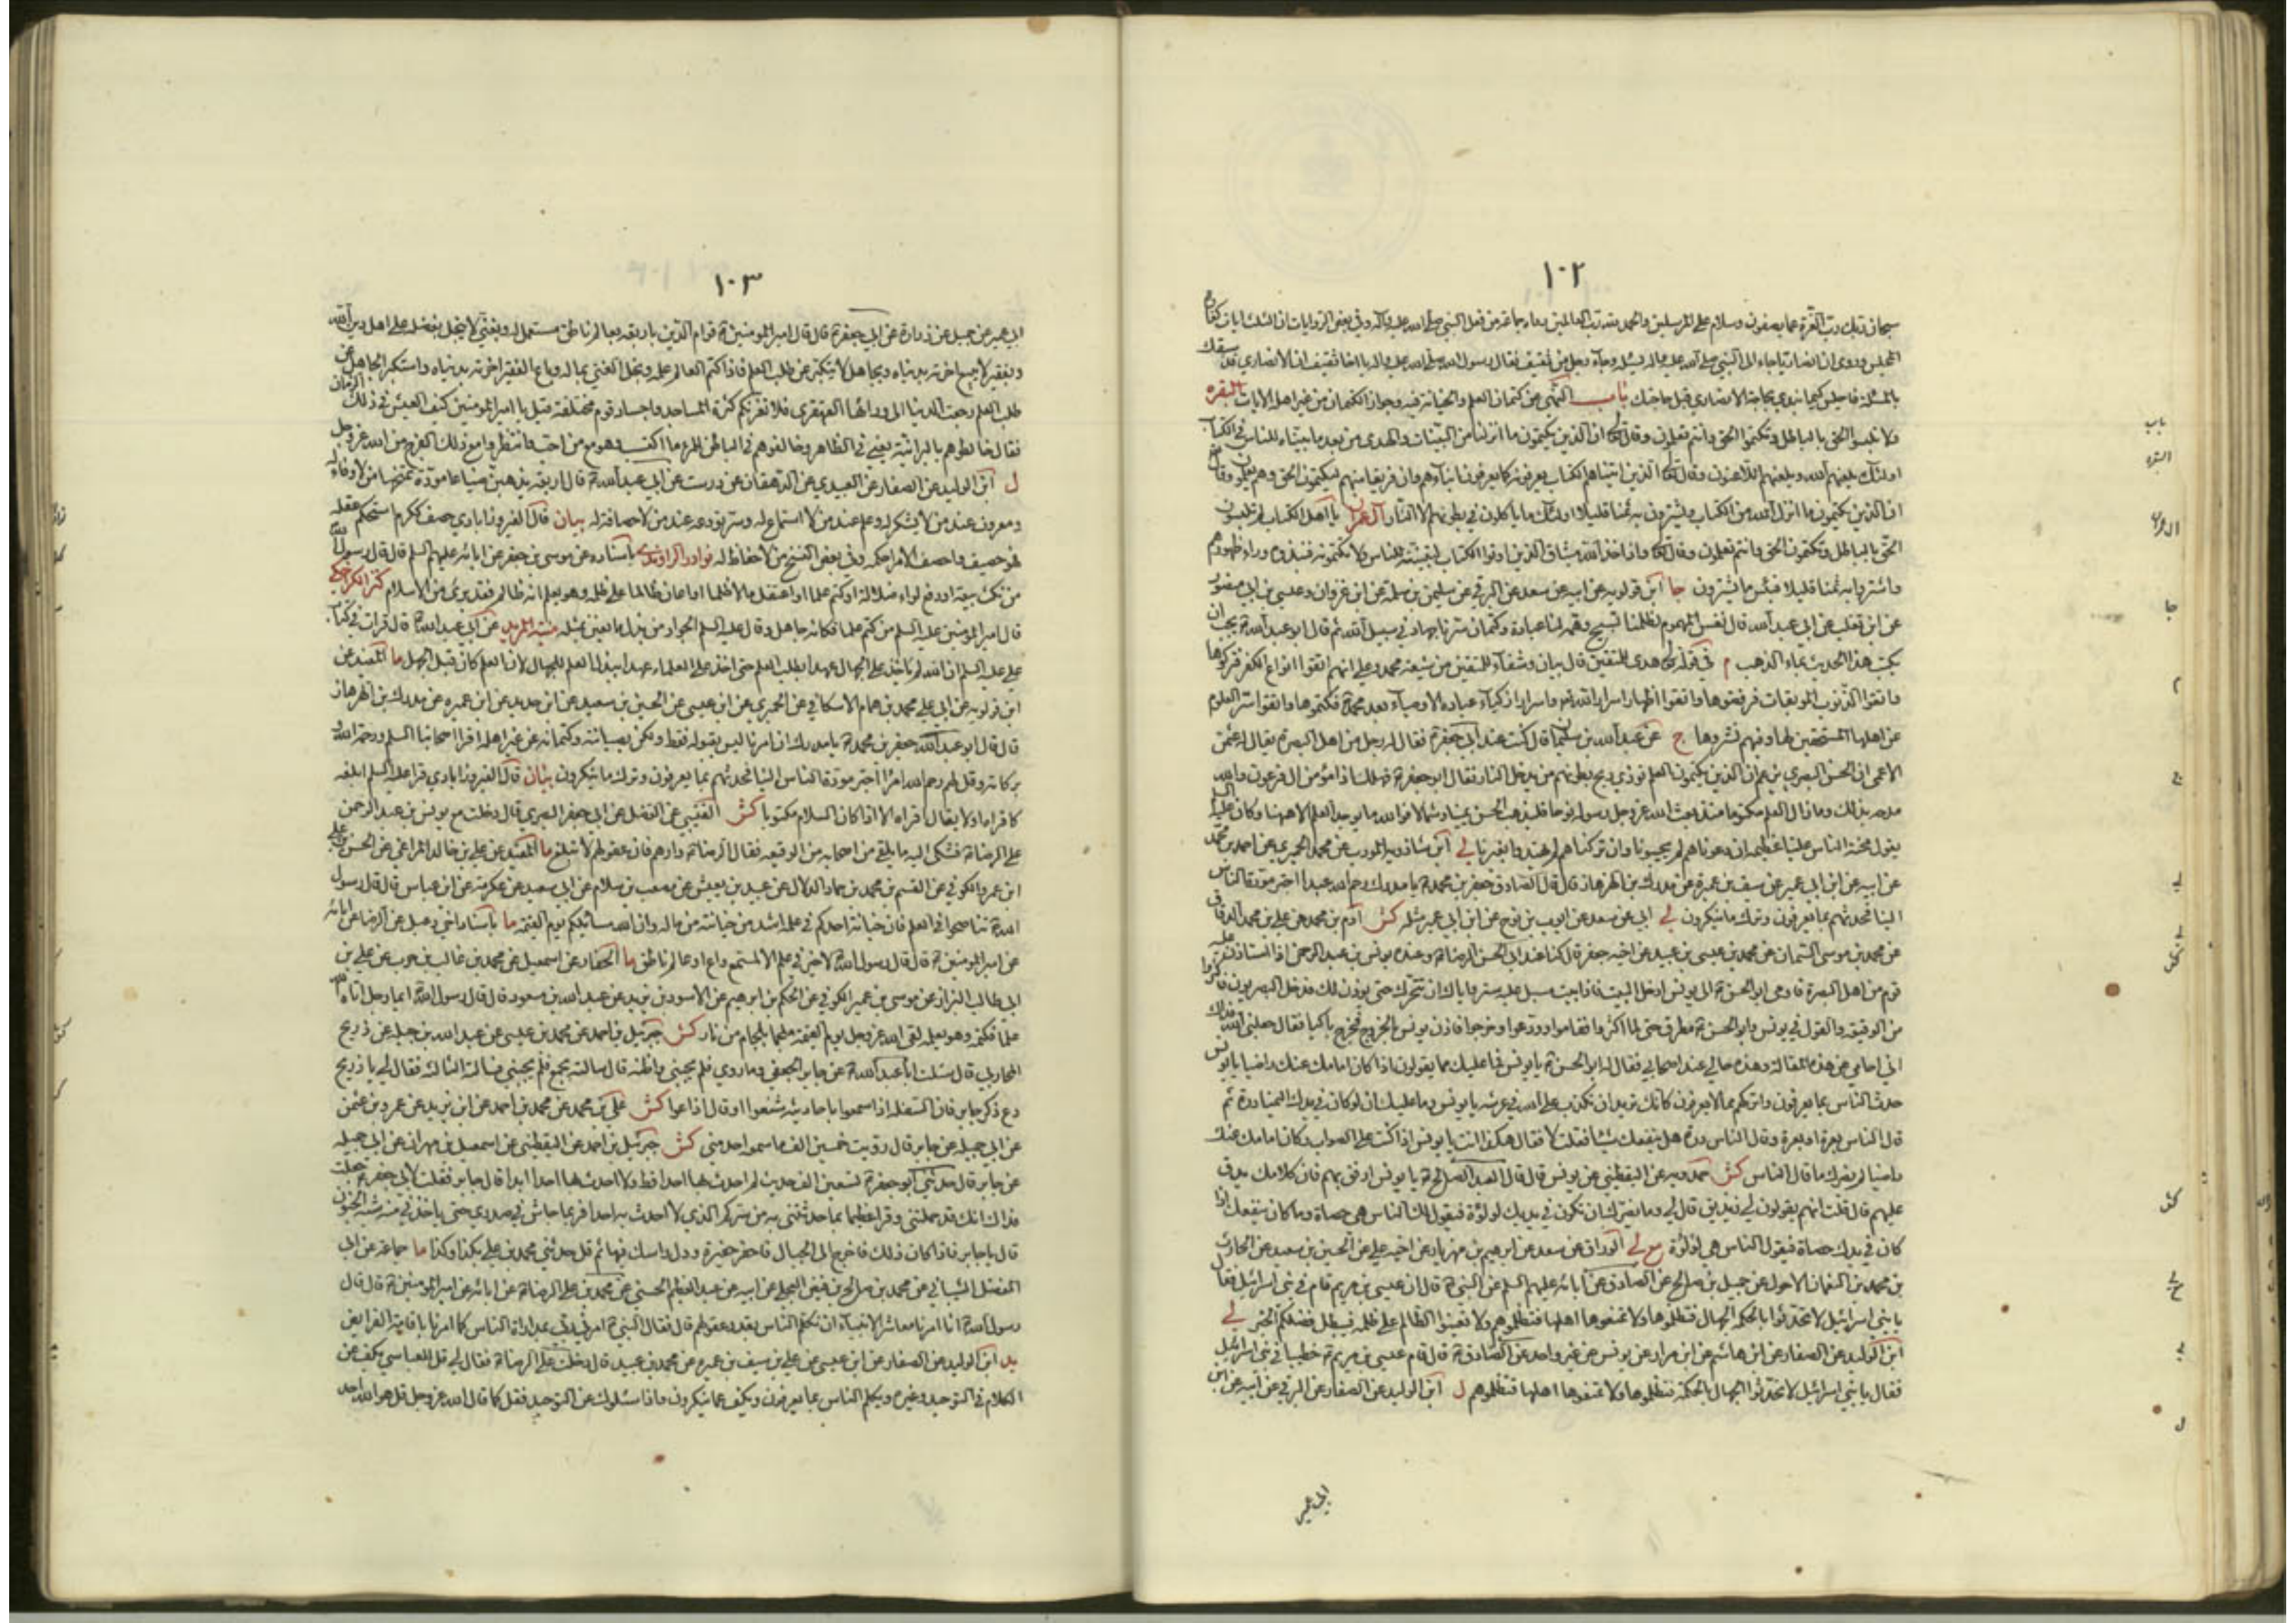 ١٠٢
سبحان ربك رب العزة عما يصفون وسلام على المرسلين والحمد لله رب العالمين رواه جماعة من فعل النبي صلى الله عليه وآله وفي بعض الروايات ان الثلث ايات كفارة
المجلس وروى ان انصاريا جاء الى النبي صلى الله عليه واله يسئله وجاء رجل من ثقيف فقال رسول الله صلى الله عليه واله يا اخا ثقيف ان الانصاري قد سبقك
بالمسئلة فاجلس كيما نبدء بحاجة الانصاري قبل حاجتك باب النهي عن كتمان العلم والخيانة فيه وجواز الكتمان من غير اهله الايات البقرة
ولا تلبسوا الحق بالباطل وتكتموا الحق وانتم تعلمون وقال تع ان الذين يكتمون ما انزلنا من البينات والهدى من بعد ما بيناه للناس في الكتاب
اولئك يلعنهم الله ويلعنهم اللاعنون وقال تع الذين اتيناهم الكتاب يعرفونه كما يعرفون ابناءهم وان فريقا منهم ليكتمون الحق وهم يعلمون وقال
ان الذين يكتمون ما انزل الله من الكتاب ويشترون به ثمنا قليلا اولئك ما ياكلون في بطونهم الا النار آل عمران يا اهل الكتاب لم تلبسون
الحق بالباطل وتكتمون الحق وانتم تعلمون وقال تع واذ اخذ الله ميثاق الذين اوتوا الكتاب لتبيننه للناس ولا تكتمونه فنبذوه وراء ظهورهم
واشتروا به ثمنا قليلا فبئس ما يشترون جا ابن قولويه عن ابيه عن سعد عن البرقي عن سليمن بن سلمة عن ابن غزوان وعيسى بن ابي منصور
عن ابن تغلب عن ابي عبد الله قال نفس المهموم لظلمنا تسبيح وهمه لنا عبادة وكتمان سرنا جهاد في سبيل الله ثم قال ابو عبد الله يجب ان
يكتب هذا الحديث بماء الذهب م في قوله تع هدى للمتقين قال بيان وشفاء للمتقين من شيعة محمد وعلي انهم اتقوا انواع الكفر فتركوها
واتقوا الذنوب الموبقات فرفضوها واتقوا اظهار اسرار الله تع واسرار ازكياء عباده الاوصياء بعد محمد فكتموها واتقوا ستر العلوم
عن اهلها المستحقين لها وفيهم نشروها ج عن عبد الله بن سليمان قال كنت عند ابي جعفر فقال له رجل من اهل البصرة يقال له عثمن
الاعمى ان الحسن البصري يزعم ان الذين يكتمون العلم توذي ريح بطونهم من يدخل النار فقال ابو جعفر فهلك اذا مؤمن ال فرعون والله
مدحه بذلك وما زال العلم مكتوما منذ بعث الله عز وجل رسوله نوحا فليذهب الحسن يمينا وشمالا فو الله ما يوجد العلم الا ههنا وكان عليه السلام
يقول محنة الناس علينا عظيمة ان دعوناهم لم يجيبونا وان تركناهم لم يهتدوا بغيرنا لي ابن شاذويه المؤدب عن محمد الحميري عن احمد بن محمد
عن ابيه عن ابن ابي عمير عن سيف بن عميرة عن مدرك بن الهزهاز قال قال الصادق جعفر بن محمد يا مدرك رحم الله عبدا اجتر مودة الناس
الينا فحدثهم بما يعرفون وترك ما ينكرون لي ابي عن سعد عن ايوب بن نوح عن ابن ابي عمير مثله كش آدم بن محمد عن علي بن محمد الدقاق
عن محمد بن موسى السمان عن محمد بن عيسى بن عبيد عن اخيه جعفر قال كنا عند ابي الحسن الرضا وعنده يونس بن عبد الرحمن اذا استاذن عليه
قوم من اهل البصرة فاومى ابو الحسن الى يونس ادخل البيت فاذا بيت مسبل عليه ستر واياك ان تتحرك حتى يوذن لك فدخل البصريون فاكثروا
من الوقيعة والقول في يونس وابو الحسن مطرق حتى لما اكثروا فقاموا وودعوا وخرجوا فاذن يونس بالخروج فخرج باكيا فقال جعلني الله فداك
اني احامي عن هذه المقالة وهذه حالي عند اصحابي فقال له ابو الحسن يا يونس فما عليك مما يقولون اذا كان امامك عنك راضيا يا يونس
حدث الناس بما يعرفون واتركهم مما لا يعرفون كانك تريد ان تكذب على الله في عرشه يا يونس وما عليك ان لو كان في يدك اليمنى درة ثم
قال الناس بعرة او بعرة وقال الناس درة هل ينفعك شيئا فقلت لا فقال هكذا انت يا يونس اذا كنت على الصواب وكان امامك عنك
راضيا لم يضرك ما قال الناس كش حمدويه عن اليقطيني عن يونس قال قال العبد الصالح يا يونس ارفق بهم فان كلامك يدق
عليهم قال قلت انهم يقولون لي زنديق قال لي وما يضرك ان تكون في يديك لؤلؤة فيقول لك الناس هي حصاة وما كان ينفعك اذا
كان في يدك حصاة فيقول الناس هي لؤلؤة مع لي الوراق عن سعد عن ابرهيم بن مهزيار عن اخيه علي عن الحسين بن سعيد عن الحارث
بن محمد بن النعمان الاحول عن جميل بن صالح عن الصادق عن ابائه عليهم السلم عن النبي قال ان عيسى بن مريم قام في بني اسرائيل فقال
يا بني اسرائيل لا تحدثوا بالحكمة الجهال فتظلموها ولا تمنعوها اهلها فتظلموهم ولا تعينوا الظالم على ظلمه فيبطل فضلكم الخبر لي
ابن الوليد عن الصفار عن ابن هاشم عن ابن مرار عن يونس عن غير واحد عن الصادق قال قام عيسى بن مريم خطيبا في بني اسرائيل
فقال يا بني اسرائيل لا تحدثوا الجهال بالحكمة فتظلموها ولا تمنعوها اهلها فتظلموهم ل ابن الوليد عن الصفار عن البرقي عن ابيه عن ابن
ابي عمير
باب
البقرة
ال عمران
جا
م
ج
لي
لي
كش
كش
مع لي
ل
١٠٣
ابي عمير عن جميل عن زرارة عن ابي جعفر قال قال امير المؤمنين قوام الدين باربعة بعالم ناطق مستعمل له وبغني لا يبخل بفضله على اهل دين الله
وبفقير لا يبيع اخرته بدنياه وبجاهل لا يتكبر عن طلب العلم فاذا كتم العالم علمه وبخل الغني بماله وباع الفقير اخرته بدنياه واستكبر الجاهل عن
طلب العلم رجعت الدنيا الى ورائها القهقرى فلا تغرنكم كثرة المساجد واجساد قوم مختلفة قيل يا امير المؤمنين كيف العيش في ذلك الزمان
فقال خالطوهم بالبرانية يعني في الظاهر وخالفوهم في الباطن للمرء ما اكتسب وهو مع من احب وانتظروا مع ذلك الفرج من الله عز وجل
ل ابن الوليد عن الصفار عن العبيدي عن الدهقان عن درست عن ابي عبد الله قال اربعة يذهبن ضياعا مودة تمنحها من لا وفاء له
ومعروف عند من لا يشكر له وعلم عند من لا استماع له وسر تودعه عند من لا حصافة له بيان قال الفيروزابادي حصف ككرم استحكم عقله
فهو حصيف واحصف الامر احكمه وفي بعض النسخ من لا حفاظ له نوادر الراوندي باسناده عن موسى بن جعفر عن ابائه عليهم السلم قال قال رسول الله
من نكث بيعة او رفع لواء ضلالة او كتم علما او اعتقل مالا ظلما او اعان ظالما على ظلمه وهو يعلم انه ظالم فقد برئ من الاسلام كنز الكراجكي
قال امير المؤمنين عليه السلم من كتم علما فكانه جاهل وقال عليه السلم الجواد من بذل ما يضن بمثله منية المريد عن ابي عبد الله قال قرات في كتاب
علي عليه السلم ان الله لم ياخذ على الجهال عهدا بطلب العلم حتى اخذ على العلماء عهدا ببذل العلم للجهال لان العلم كان قبل الجهل ما المفيد عن
ابن قولويه عن ابي علي محمد بن همام الاسكافي عن الحميري عن ابن عيسى عن الحسين بن سعيد عن ابن حديد عن ابن عميرة عن مدرك بن الهزهاز
قال قال ابو عبد الله جعفر بن محمد يا مدرك ان امرنا ليس بقبوله فقط ولكن بصيانته وكتمانه عن غير اهله اقرا اصحابنا السلم ورحمة الله
وبركاته وقل لهم رحم الله امرا اجتر مودة الناس الينا فحدثهم بما يعرفون وترك ما ينكرون بيان قال الفيروزابادي قرا عليه السلم ابلغه
كاقراه او لا يقال اقراه الا اذا كان السلام مكتوبا كش القتيبي عن الفضل عن ابي جعفر البصري قال دخلت مع يونس بن عبد الرحمن
على الرضا فشكى اليه ما يلقى من اصحابه من الوقيعة فقال الرضا دارهم فان عقولهم لا تبلغ ما المفيد عن علي بن خالد المراغي عن الحسن بن علي
ابن عمرو الكوفي عن القسم بن محمد بن حماد الدلال عن عبيد بن يعيش عن مصعب بن سلام عن ابي سعيد عن عكرمة عن ابن عباس قال قال رسول
الله تناصحوا في العلم فان خيانة احدكم في علمه اشد من خيانته من ماله وان الله سائلكم يوم القيمة ما باسناد اخي دعبل عن الرضا عن ابائه
عن امير المؤمنين قال قال رسول الله لا خير في علم الا لمستمع واع او عالم ناطق ما الحفار عن اسمعيل عن محمد بن غالب بن حرب عن علي بن
ابي طالب البزاز عن موسى بن عمير الكوفي عن الحكم بن ابرهيم عن الاسود بن يزيد عن عبد الله بن مسعود قال قال رسول الله ايما رجل اتاه الله
علما فكتمه وهو يعلمه لقي الله عز وجل يوم القيمة ملجما بلجام من نار كش جبرئيل بن احمد عن محمد بن عيسى عن عبد الله بن جبلة عن ذريح
المحاربي قال سئلت ابا عبد الله عن جابر الجعفي وما روى فلم يجبني واظنه قال سالته بجمع فلم يجبني فسالته الثالثة فقال لي يا ذريح
دع ذكر جابر فان السفلة اذا سمعوا باحاديثه شنعوا او قال اذاعوا كش علي بن محمد عن محمد بن احمد عن ابن يزيد عن عمرو بن عثمن
عن ابي جميلة عن جابر قال رويت خمسين الف ما سمعه احد مني كش جبرئيل بن احمد عن اليقطيني عن اسمعيل بن مهران عن ابي جميلة
عن جابر قال حدثني ابو جعفر تسعين الف حديث لم احدث بها احدا قط ولا احدث بها احدا ابدا قال جابر فقلت لابي جعفر جعلت
فداك انك قد حملتني وقرا عظيما بما حدثتني به من سركم الذي لا احدث به احدا فربما جاش في صدري حتى ياخذني منه شبه الجنون
قال يا جابر فاذا كان ذلك فاخرج الى الجبال فاحفر حفيرة ودل راسك فيها ثم قل حدثني محمد بن علي بكذا وكذا ما جماعة عن ابي
المفضل الشيباني عن محمد بن صالح بن فيض العجلي عن ابيه عن عبد العظيم الحسني عن محمد بن علي الرضا عن ابائه عن امير المؤمنين قال قال
رسول الله انا امرنا معاشر الانبياء ان نكلم الناس بقدر عقولهم قال فقال النبي امرني ربي بمداراة الناس كما امرنا باقامة الفرائض
يد ابن الوليد عن الصفار عن ابن عيسى عن علي بن سيف بن عميرة عن محمد بن عبيد قال دخلت على الرضا فقال لي قل للعباسي يكف عن
الكلام في التوحيد وغيره ويكلم الناس بما يعرفون ويكف عما ينكرون واذا سئلوك عن التوحيد فقل كما قال الله عز وجل قل هو الله احد